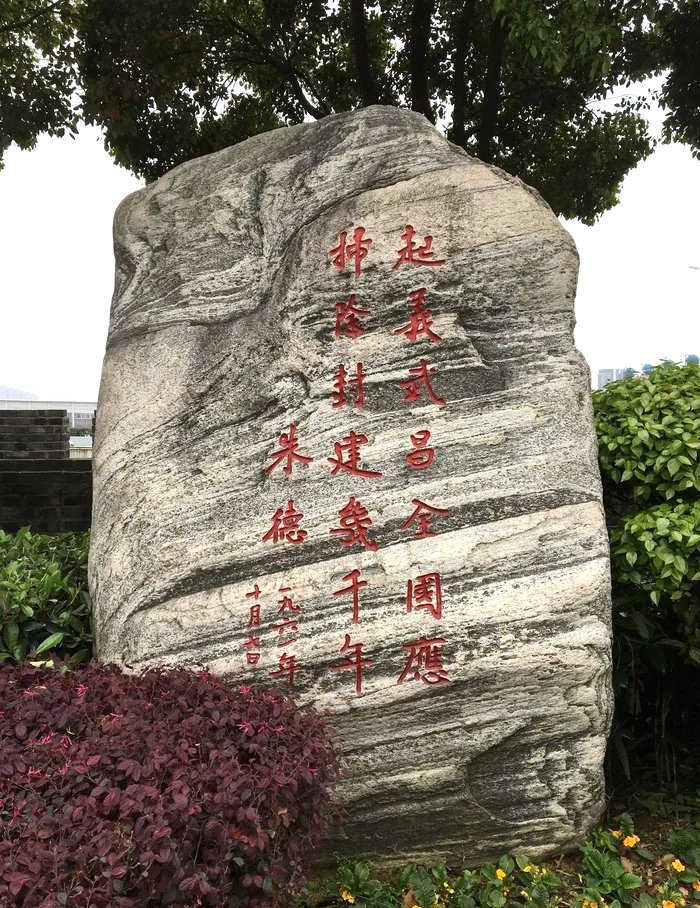 起義武昌全國應
掃除封建幾千年
朱德
一九六一年
十月七日